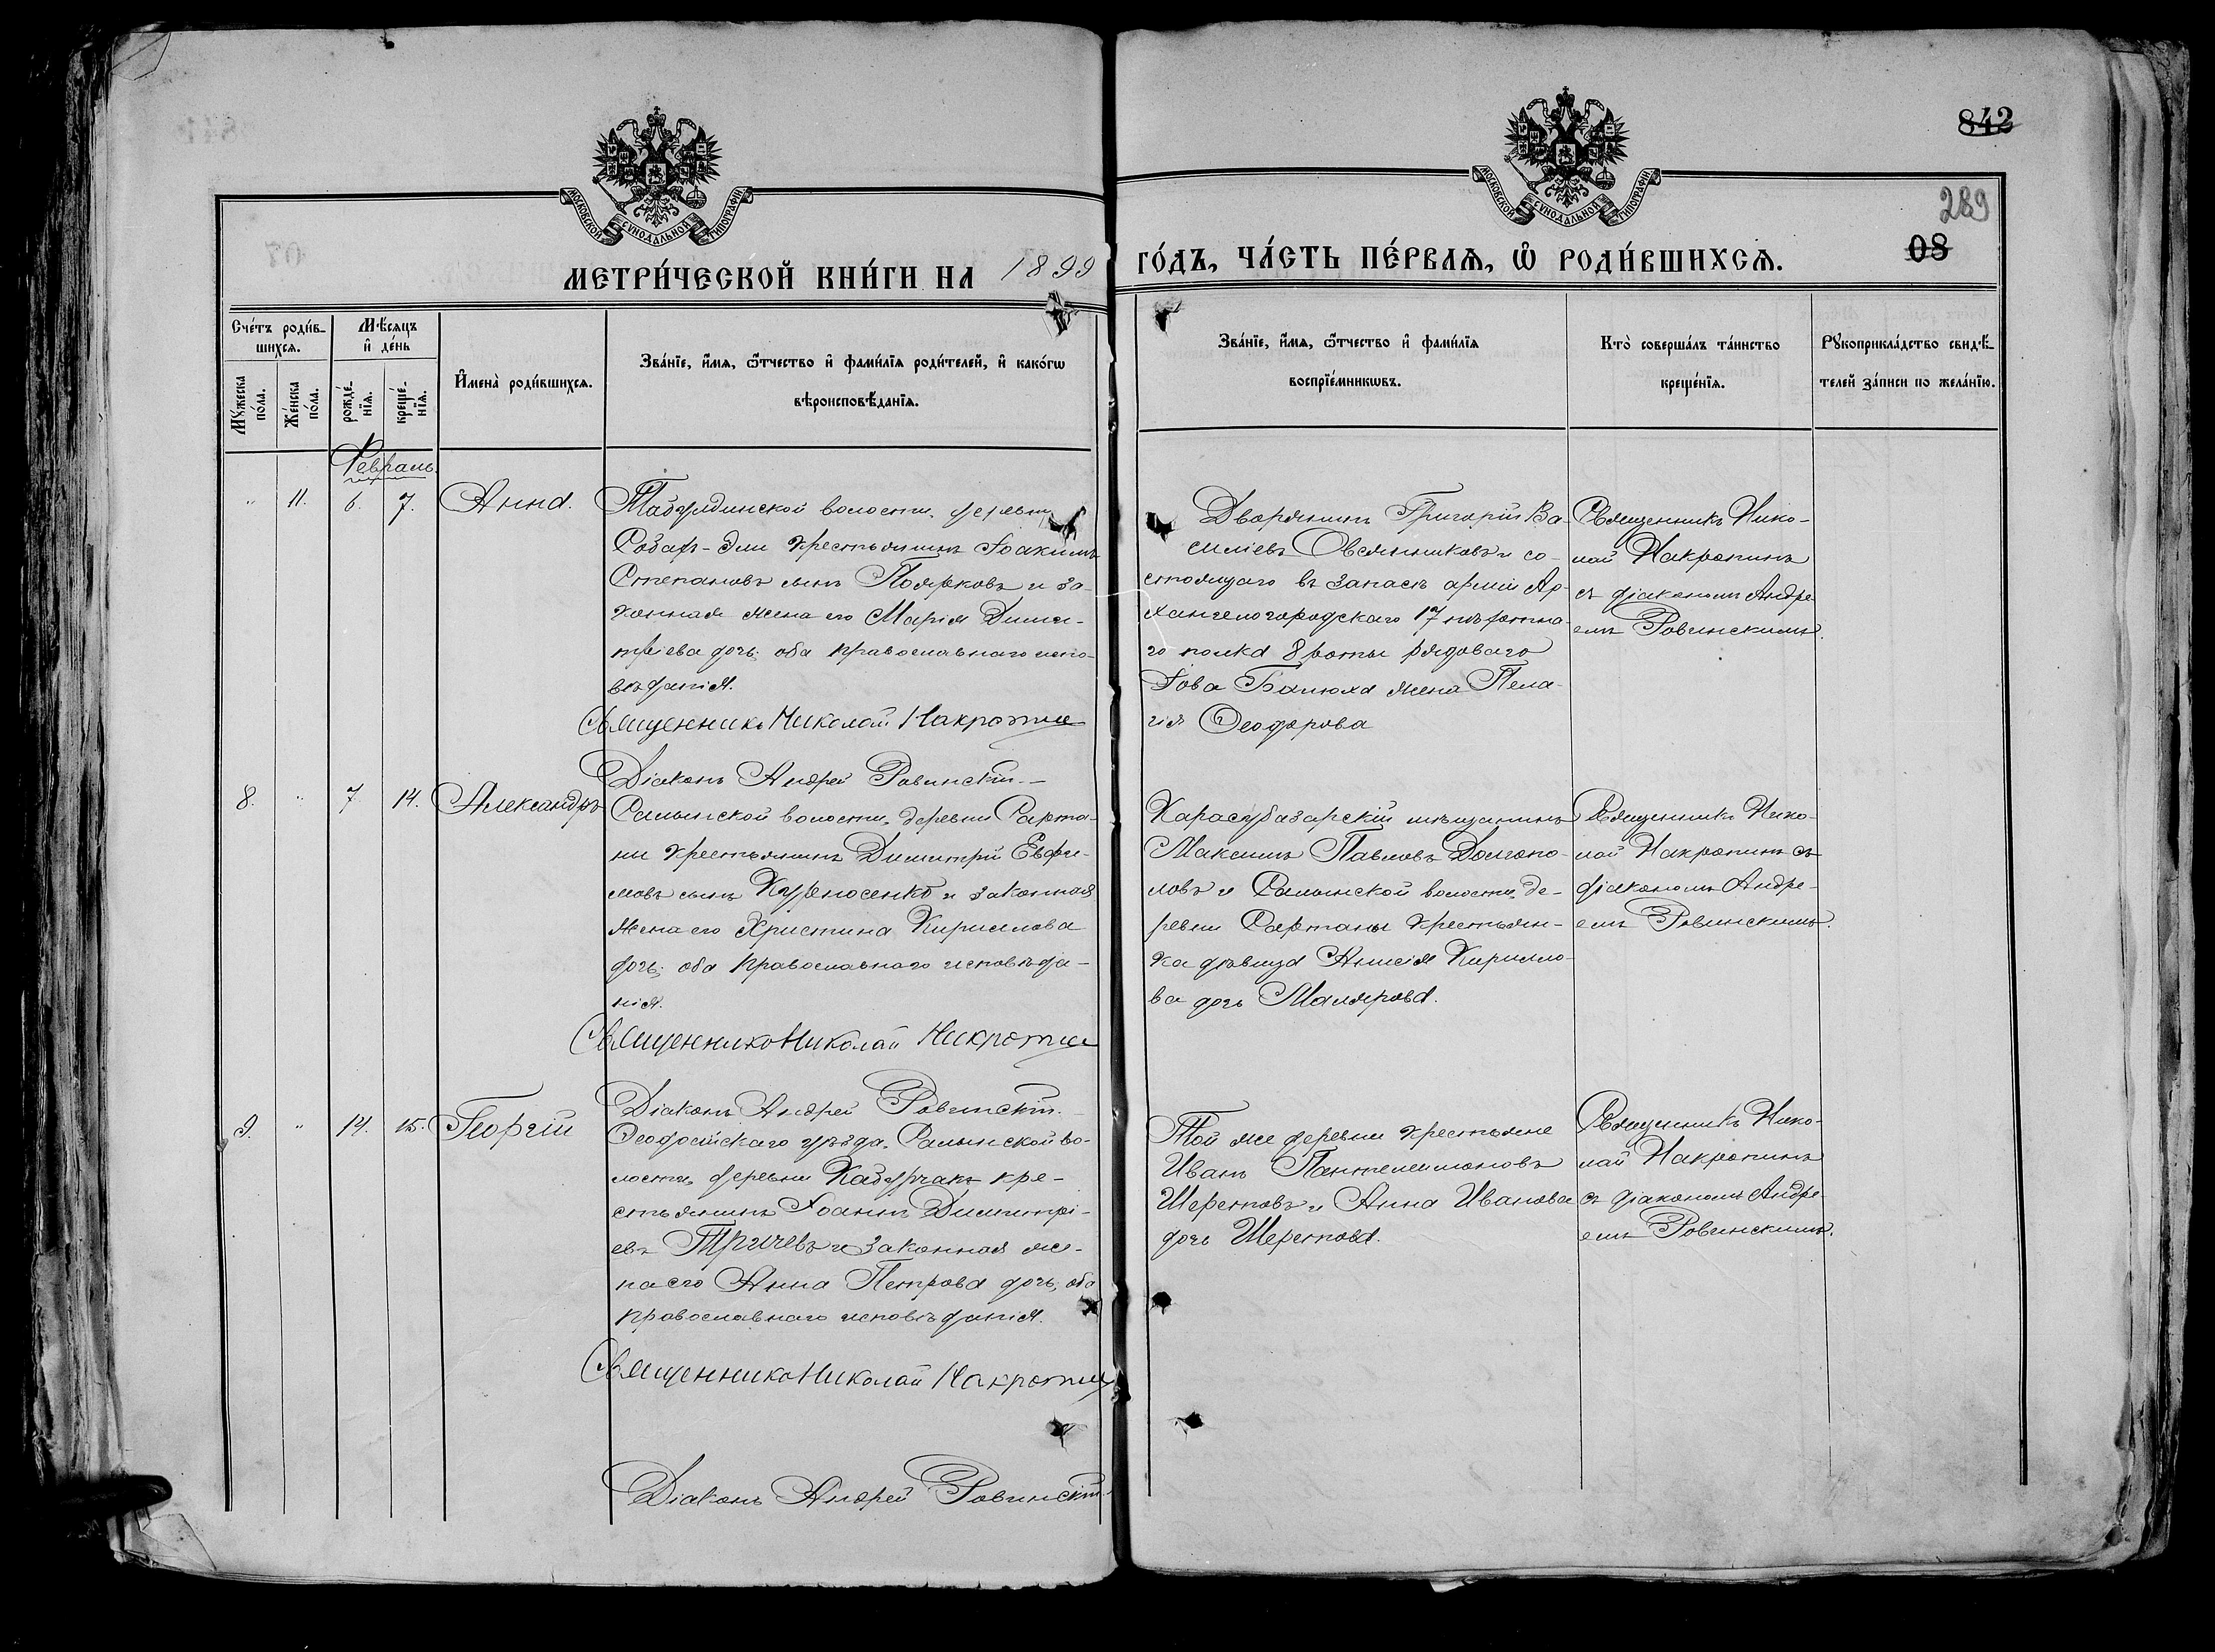 842
289
08
МОСКОВСКОЙ СѴНОДАЛЬНОЙ ТИПОГРАФІИ
МОСКОВСКОЙ СѴНОДАЛЬНОЙ ТИПОГРАФІИ
МЕТРИ́ЧЕСКОЙ КНИ́ГИ НА 1899
ГО́ДЪ, ЧА́СТЬ ПЕ́РВАѦ, Ѡ҆ РОДИ́ВШИХСѦ.
Сче́тъ роди́в-
шихсѧ.
Мꙋ́жеска
по́ла.
Же́нска
по́ла.
Мѣ́сѧцъ
и҆ де́нь
рожде́-
нїѧ.
креще́-
нїѧ.
И҆мена̀ роди́вшихсѧ.
Зва́нїе, и҆́мѧ, ѻ҆́тчество и҆ фами́лїѧ роди́телей, и҆ како́гѡ
вѣроисповѣ́данїѧ.
Зва́нїе, и҆́мѧ, ѻ҆́тчество и҆ фами́лїѧ
воспрїе́мникѡвъ.
Кто̀ соверша́лъ та́инство
креще́нїѧ.
Рꙋкоприкла́дство свидѣ́-
телей за́писи по жела́нїю.
Февраль.
" 11. 6. 7. Анна.
Табулдинской волости, деревни
Іоакимъ
Степановъ сынъ Поярковъ и за-
конная жена его Марія Дими-
тріева дочь; оба православнаго испо-
вѣданія.
Священникъ Николай Накропинъ
Діаконъ Андрей Ровинскій.
Дворянинъ Григорій Ва-
силіевъ Овсянниковъ и со-
стоящаго въ запасѣ арміи Ар-
хангелогородскаго 17 пѣхотна-
го полка 8 роты рядоваго
Іова жена Пела-
гія Ѳеодорова
Священникъ Нико-
лай Накропинъ
съ діакономъ Андре-
емъ Ровинскимъ.
8. " 7 14. Александръ
Салынской волости, деревни Сарта-
ны крестьянинъ Димитрій Евфи-
мовъ сынъ Курносенко и законная
жена его Христина Кириллова
дочь; оба православнаго исповѣда-
нія.
Священникъ Николай Накропинъ
Діаконъ Андрей Ровинскій.
Карасубазарскій мѣщанинъ
Максимъ Павловъ Долгопо-
ловъ и Салынской волости, де-
ревни Сартаны крестьян-
ка дѣвица Анисія Кирилло-
ва дочь Малярова.
Священникъ Нико-
лай Накропинъ съ
діакономъ Андре-
емъ Ровинскимъ.
9. " 14. 15. Георгій
Ѳеодосійскаго уѣзда, Салынской во-
лости, деревни Кабурчакъ кре-
стьянинъ Іоаннъ Димитрі-
евъ Тричевъ и законная же-
на его Анна Петрова дочь; оба
православнаго исповѣданія.
Священникъ Николай Накропинъ
Діаконъ Андрей Ровинскій.
Той же деревни крестьяне
Иванъ Пантелеимоновъ
Шеретовъ и Анна Иванова
дочь Шеретова.
Священникъ Нико-
лай Накропинъ
съ діакономъ Андре-
емъ Ровинскимъ.